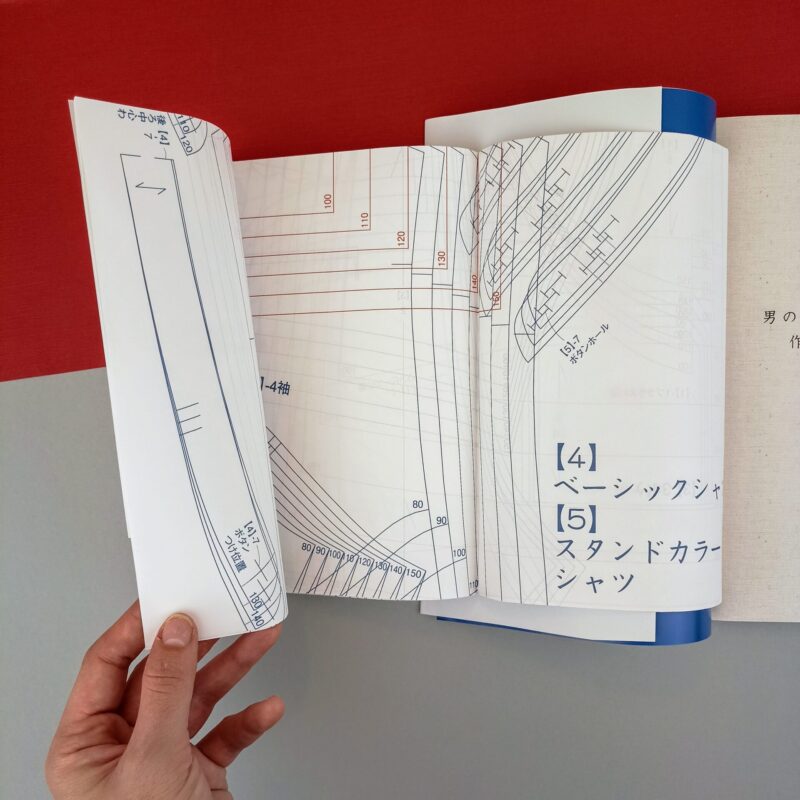 後ろ中心わ
110
120
【4】-7
【4】-7
ボタン
つけ位置
130
140
100
110
120
130
140
-4袖
80
90
100
80 90 100 110 120 130 140 150
110
【5】-7
ボタンホール
【4】
ベーシックシャ
【5】
スタンドカラー
シャツ
男の
作